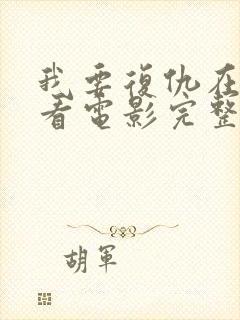 我要復仇在
看電影完整
胡軍